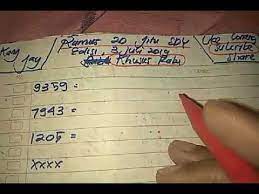 Kang
Jay
Rumus 2D, Jitu SDY
Edisi, 3 Juli 2019
Khusus Rabu
Subcribe
Share
9359 =
7943 =
1205 =
xxxx